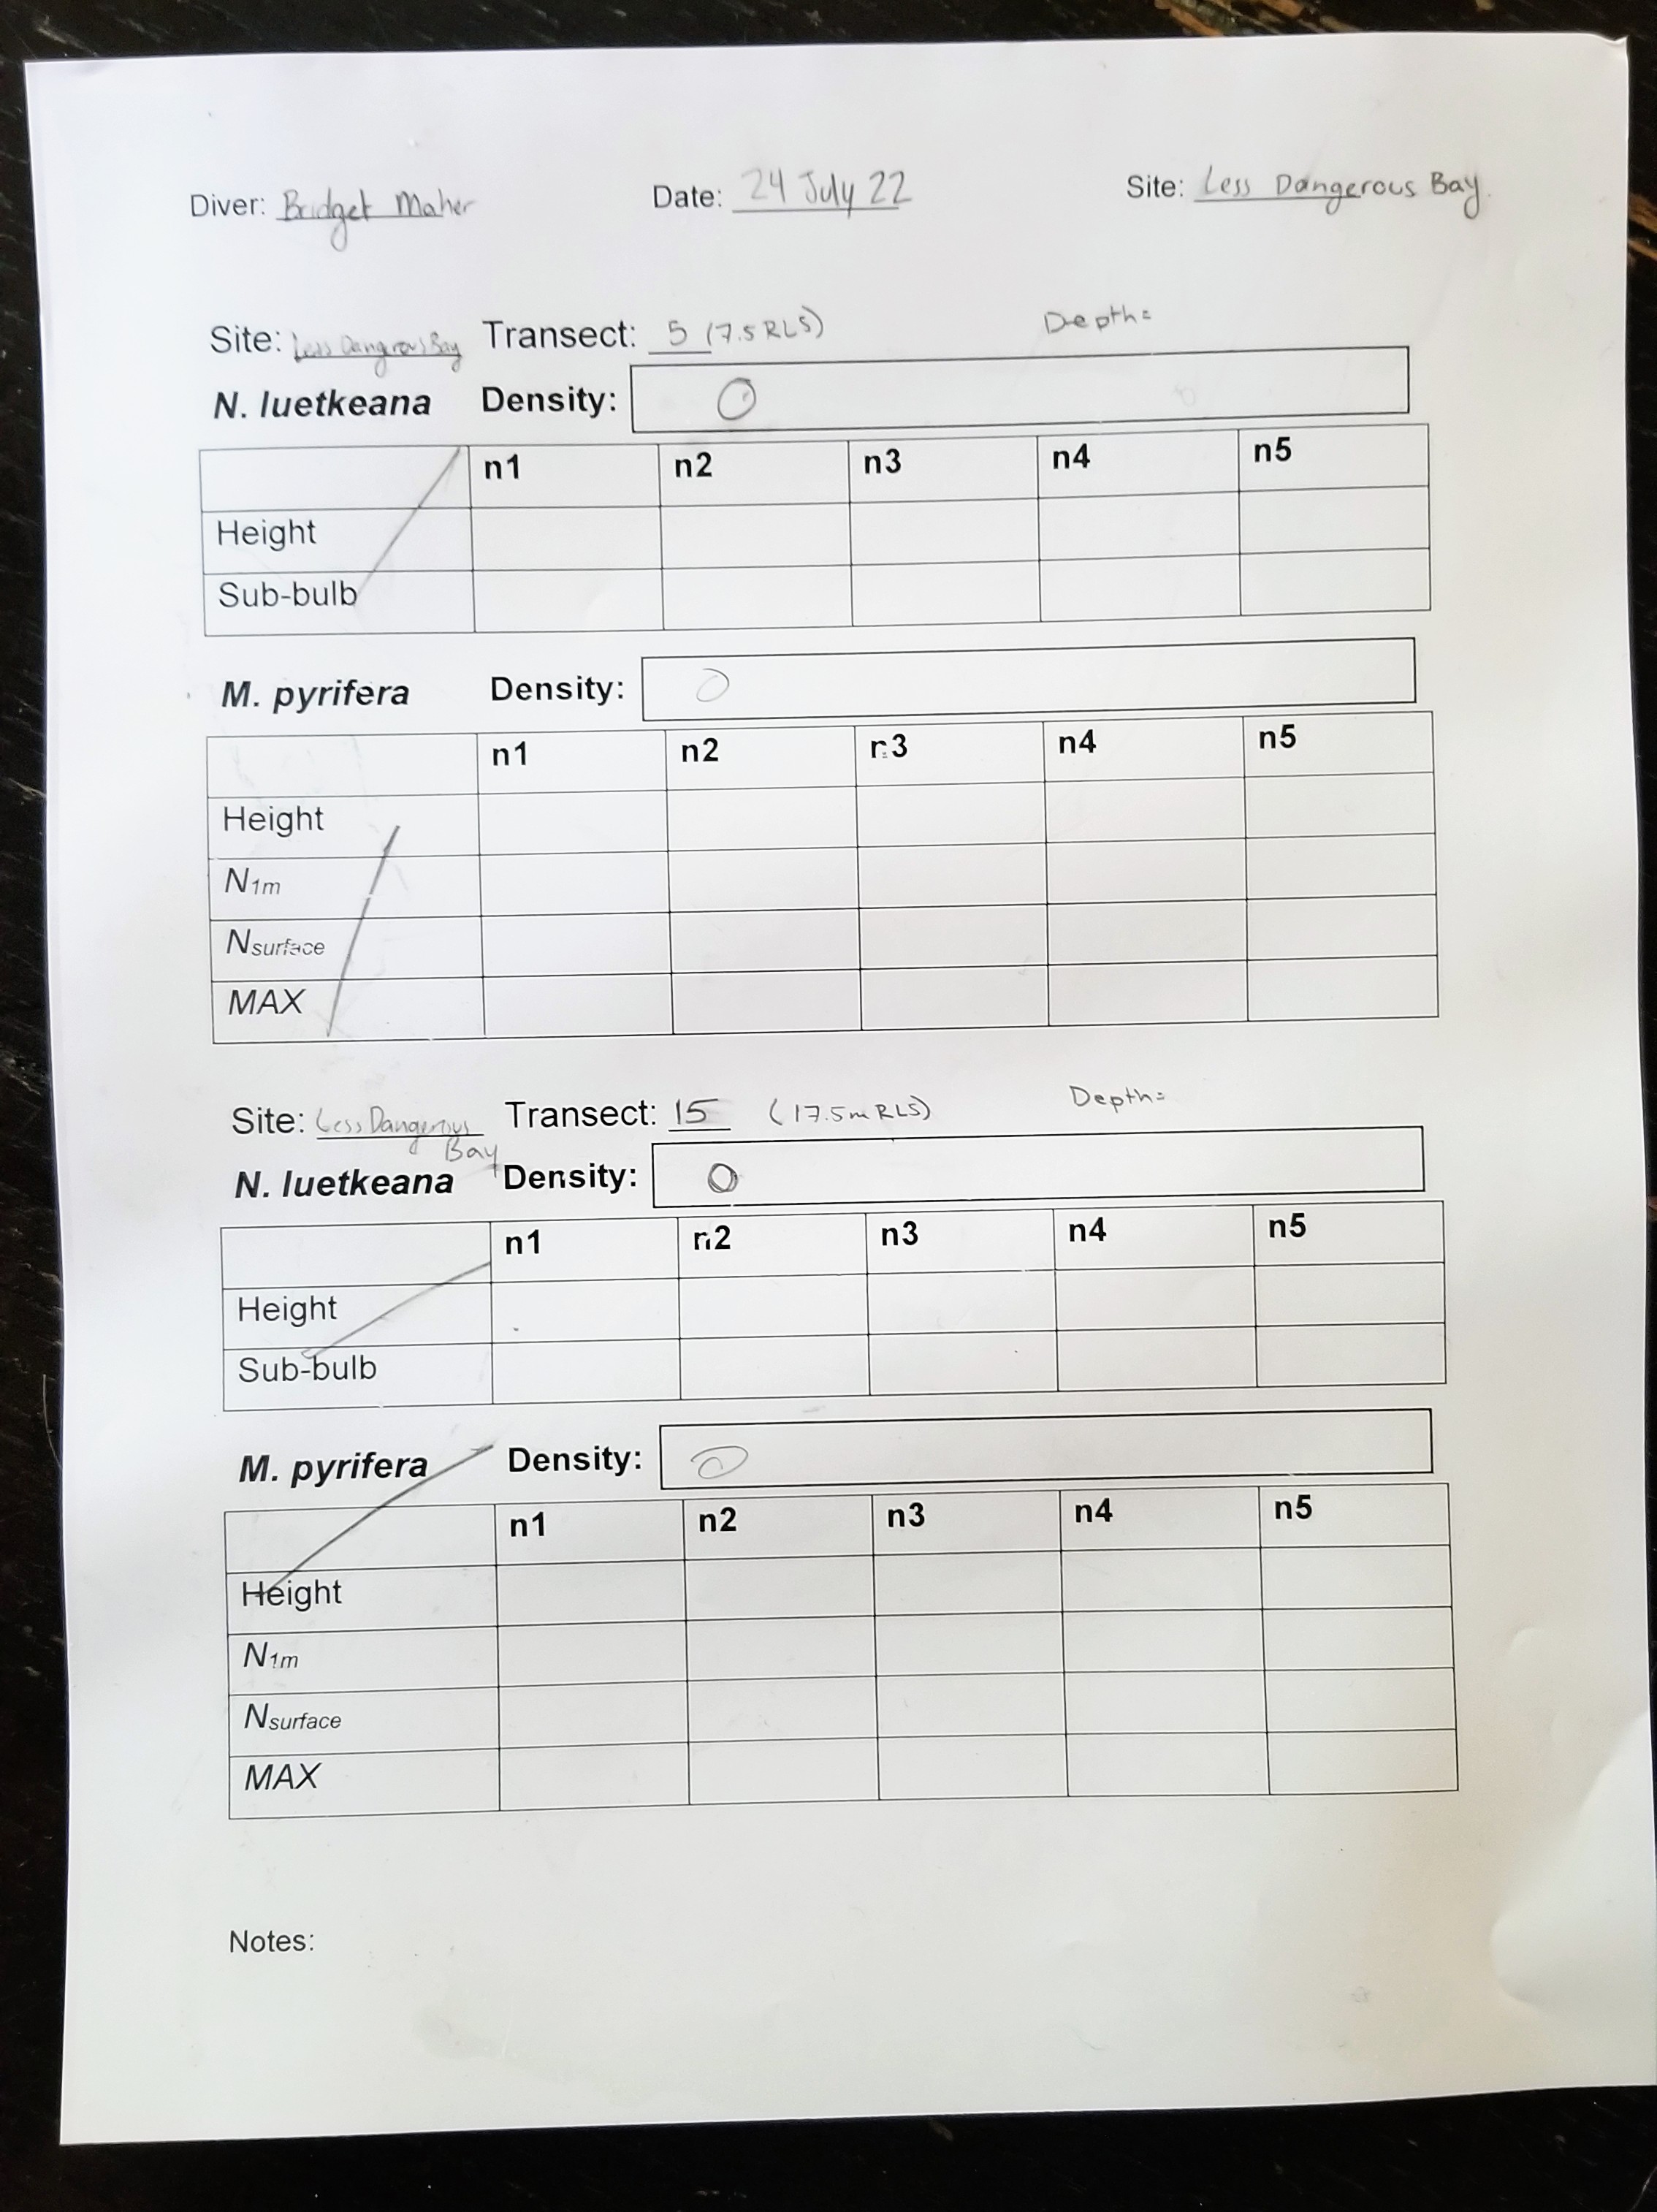 Diver: Bridget Maher Date: 24 July 22 Site: Less Dangerous Bay.
Site: Less Dangrous Bay Transect: 5 (7.5 RLS) Depth=
N. luetkeana Density: 0
n1 n2 n3 n4 n5
Height
Sub-bulb
M. pyrifera Density: 0
n1 n2 n3 n4 n5
Height
N1m
Nsurface
MAX
Site: Less Dangerous Bay Transect: 15 (17.5m RLS) Depth=
N. luetkeana Density: 0
n1 n2 n3 n4 n5
Height
Sub-bulb
M. pyrifera Density: 0
n1 n2 n3 n4 n5
Height
N1m
Nsurface
MAX
Notes: